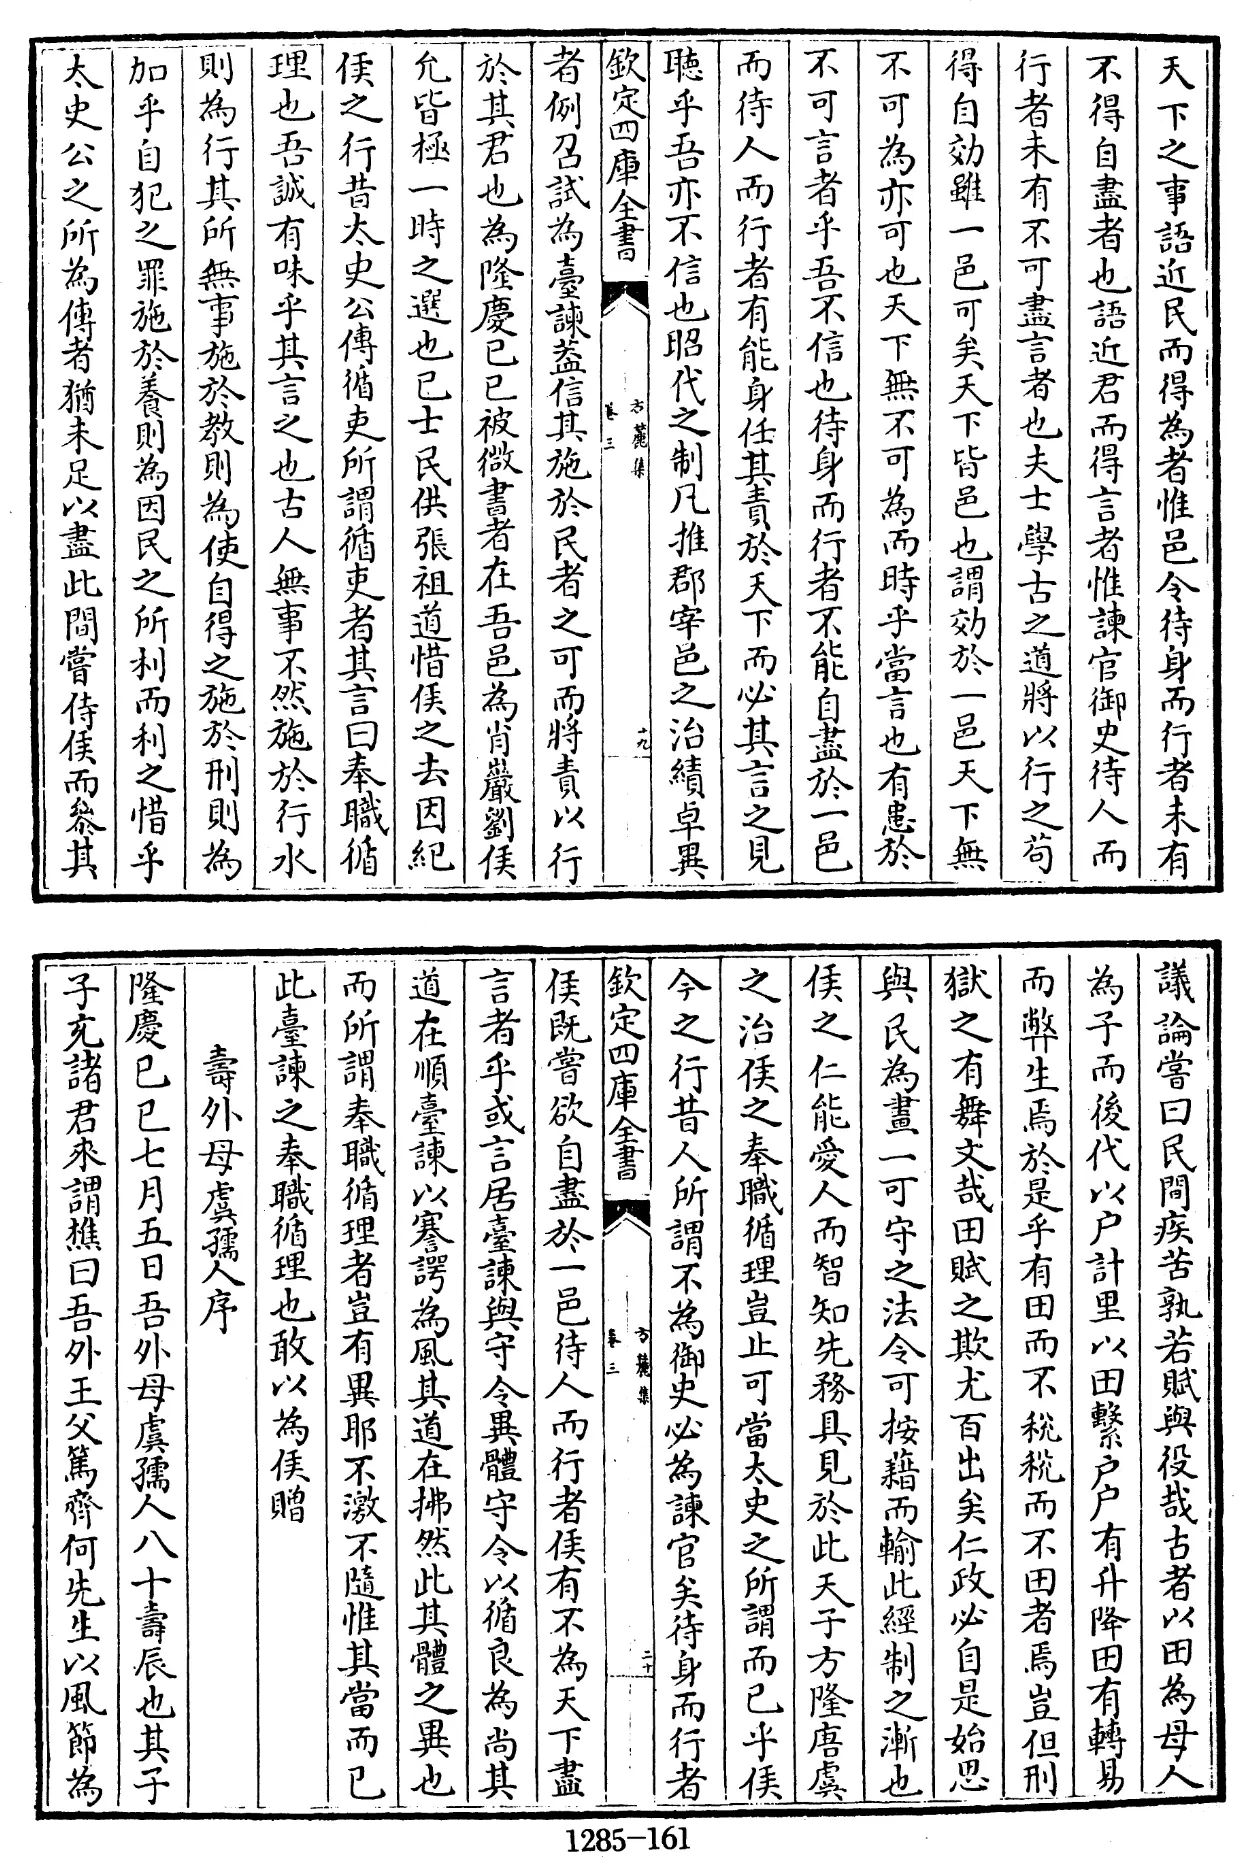 天下之事語近民而得為者惟邑令待身而行者未有
不得自盡者也語近君而得言者惟諫官御史待人而
行者未有不可盡言者也夫士學古之道將以行之苟
得自効雖一邑可矣天下皆邑也謂効於一邑天下無
不可為亦可也天下無不可為而時乎當言也有患於
不可言者乎吾不信也待身而行者不能自盡於一邑
而待人而行者有能身任其責於天下而必其言之見
聽乎吾亦不信也昭代之制凡推郡宰邑之治績卓異
欽定四庫全書
方麓集
卷三
十九
者例召試為臺諫葢信其施於民者之可而將責以行
於其君也為隆慶己巳被徵書者在吾邑為肖巖劉侯
允皆極一時之選也已士民供張祖道惜侯之去因紀
侯之行昔太史公傳循吏所謂循吏者其言曰奉職循
理也吾誠有味乎其言之也古人無事不然施於行水
則為行其所無事施於教則為使自得之施於刑則為
加乎自犯之罪施於養則為因民之所利而利之惜乎
太史公之所為傳者猶未足以盡此間嘗侍侯而叅其
議論嘗曰民間疾苦孰若賦與役哉古者以田為母人
為子而後代以户計里以田繫户户有升降田有轉易
而弊生焉於是乎有田而不稅稅而不田者焉豈但刑
獄之有舞文哉田賦之欺尤百出矣仁政必自是始思
與民為畫一可守之法令可按藉而輸此經制之漸也
侯之仁能愛人而智知先務具見於此天子方隆唐虞
之治侯之奉職循理豈止可當太史之所謂而已乎侯
今之行昔人所謂不為御史必為諫官矣待身而行者
欽定四庫全書
方麓集
卷三
二十
侯既嘗欲自盡於一邑待人而行者侯有不為天下盡
言者乎或言居臺諫與守令異體守令以循良為尚其
道在順臺諫以謇諤為風其道在拂然此其體之異也
而所謂奉職循理者豈有異耶不激不隨惟其當而已
此臺諫之奉職循理也敢以為侯贈
壽外母虞孺人序
隆慶己巳七月五日吾外母虞孺人八十壽辰也其子
子充諸君來謂樵曰吾外王父篤齋何先生以風節為
1285-161